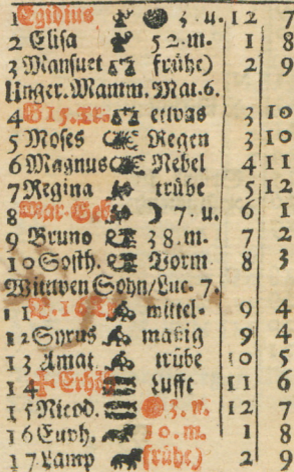 1 Egidius ● 3. u. 12 7
2 Elisa 52. m. 1 8
3 Mansuet frühe) 2 9
linger. Mamm. Mat. 6.
4 G 15. Tr. etwas 3 10
5 Moses Regen 3 10
6 Magnus Nebel 4 11
7 Regina trübe 5 12
8 Mar. Geb. ☽ 7. u. 6 1
9 Bruno 38. m. 7 2
10 Sosth. Vorm 8 3
Wittwen Sohn/Luc. 7.
11 16 Tr mittel- 9 4
12 Syrus mäßig 9 4
13 Amat trübe 10 5
14 ✝ Erhöh Lufft 11 6
15 Nicod. 3. u. 12 7
16 Euph. 10. m. 1 8
17 Lamp frühe) 2 9